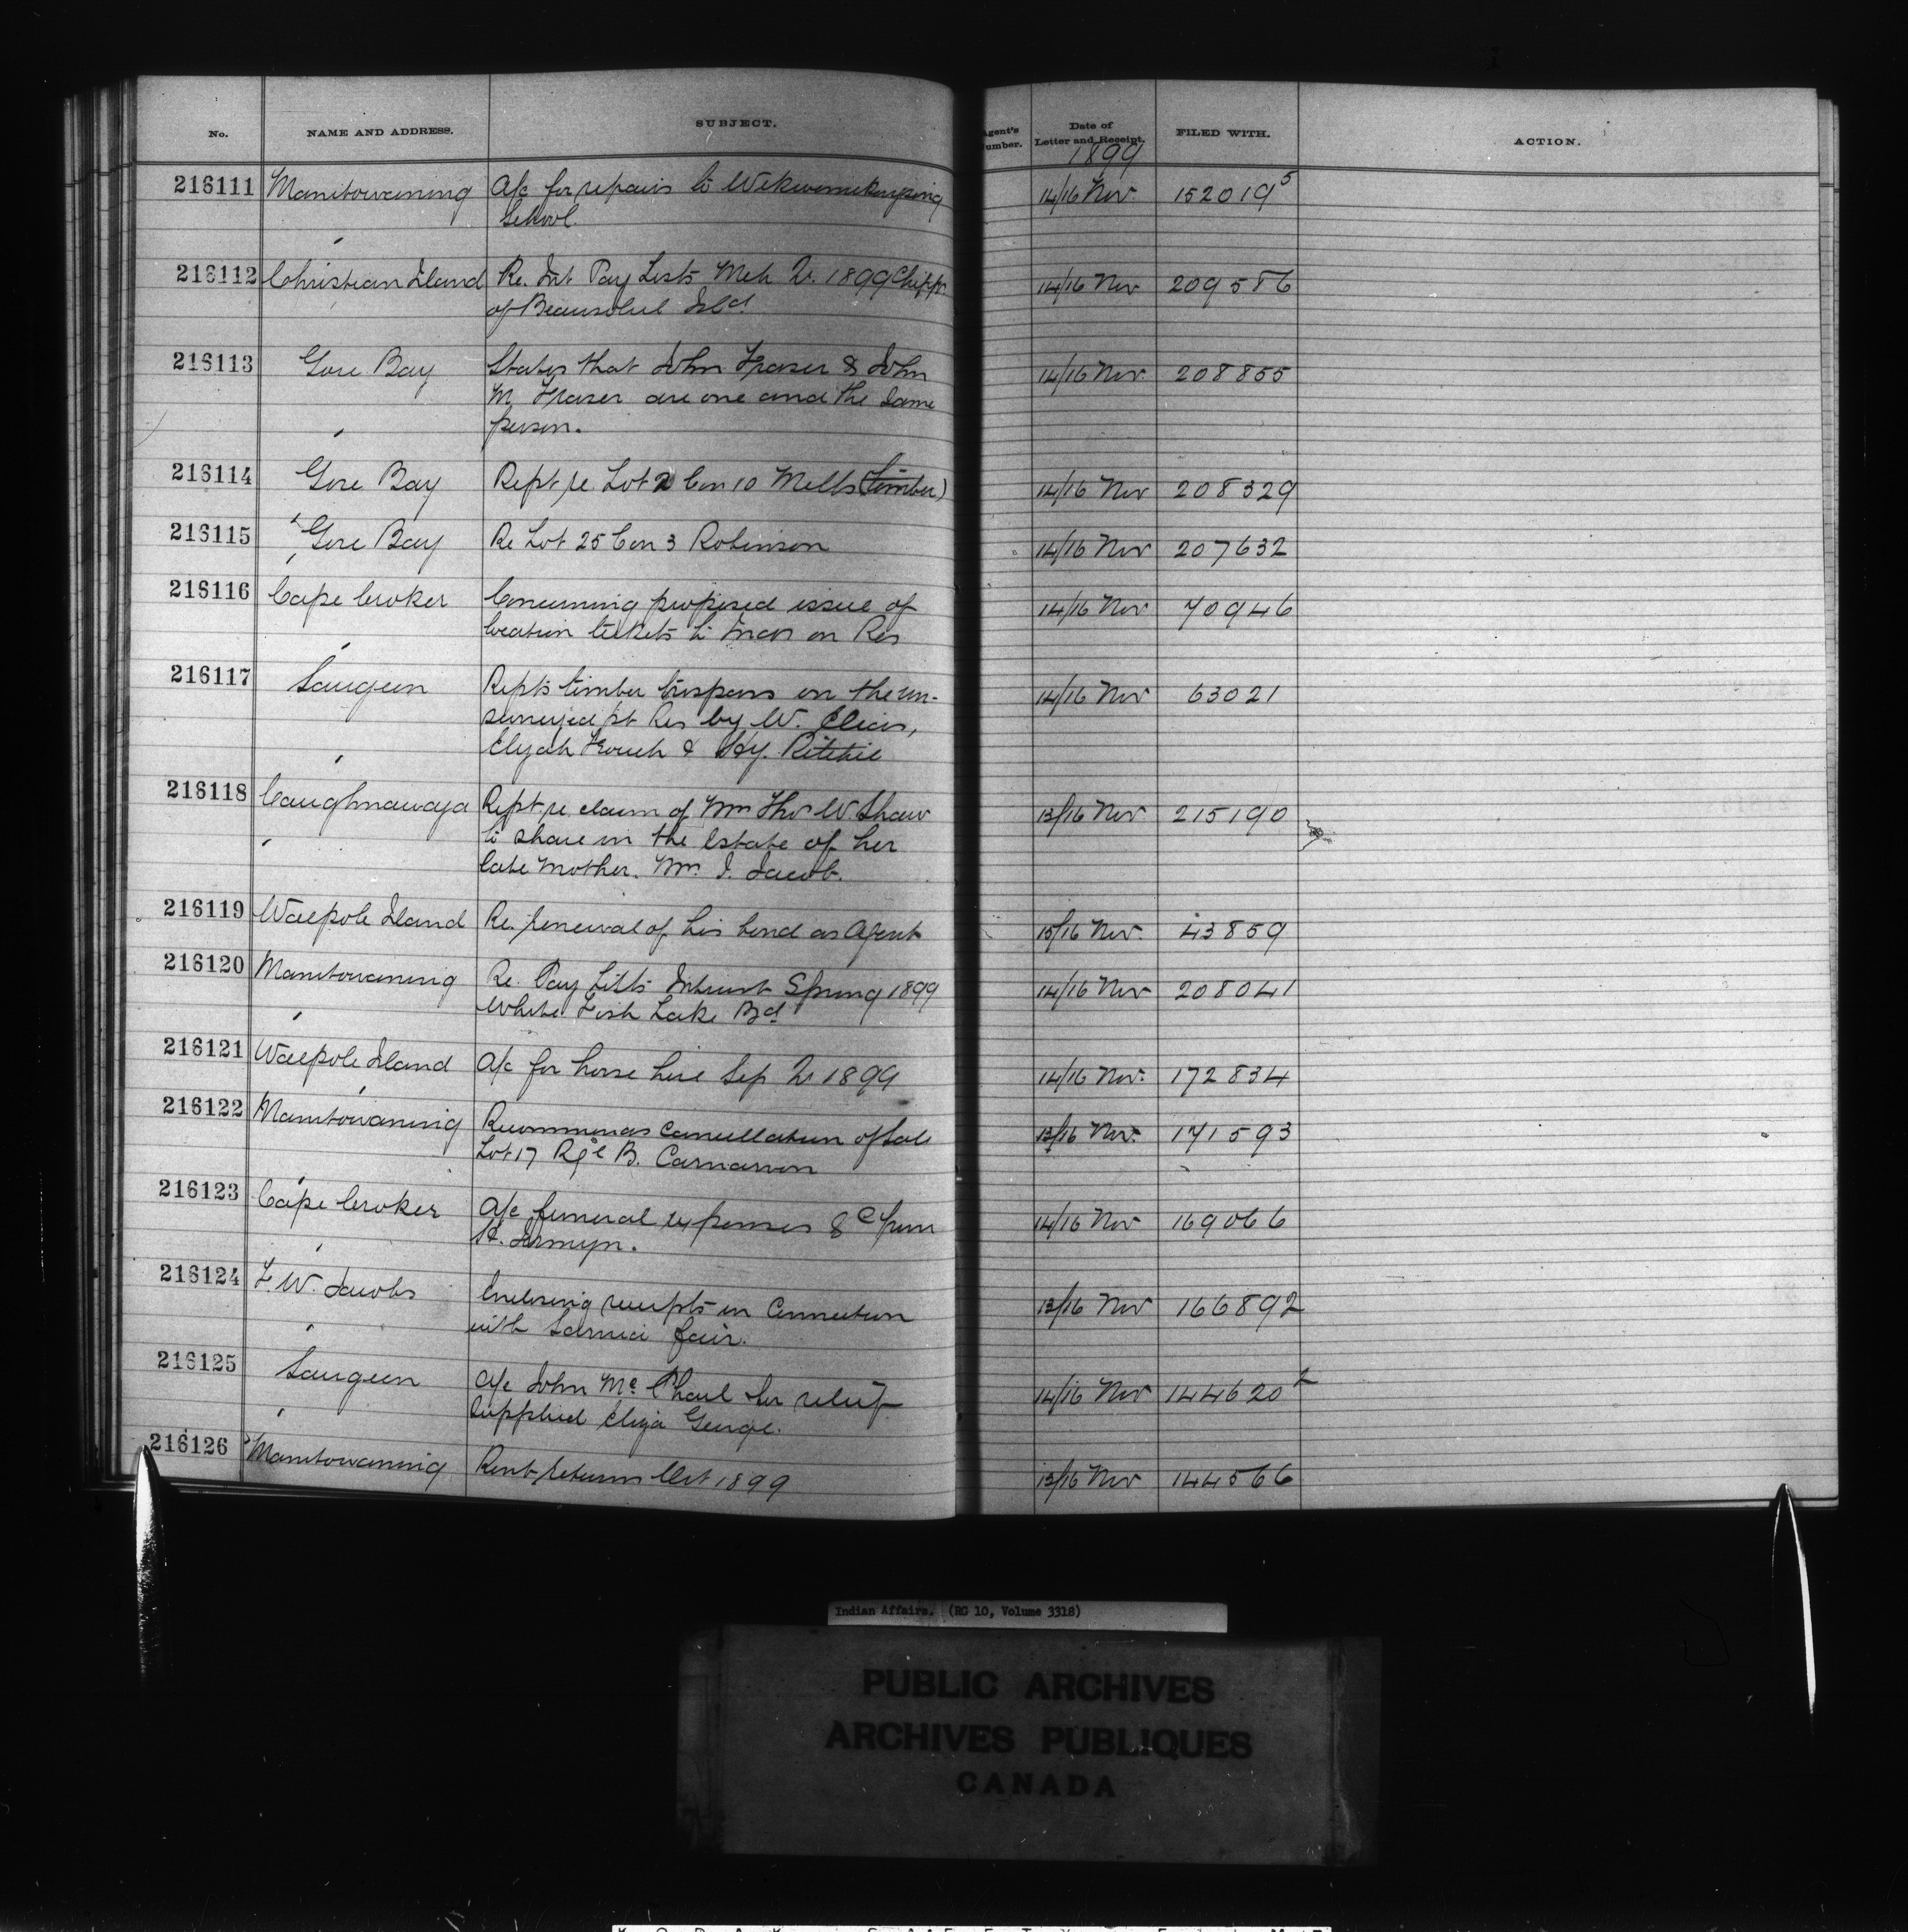 No. NAME AND ADDRESS. SUBJECT. Agent's Number. Date of Letter and Receipt. FILED WITH. ACTION.
1899
216111 Manitowaning A/c for repairs to Wekwemikongsing 14/16 Nov. 152019⁵
School.
216112 Christian Island Re. Int Pay Lists Mch Qr. 1899 Chipps. 14/16 Nov 209586
of Beausoleil Isld.
216113 Gore Bay States that John Fraser & John 14/16 Nov. 208855
M. Fraser are one and the same
person.
216114 Gore Bay Rept re Lot 2 Con 10 Mills (Timber) 14/16 Nov 208329
216115 Gore Bay Re Lot 25 Con 3 Robinson 14/16 Nov 207632
216116 Cape Croker Concerning proposed issue of 14/16 Nov 70946
location tickets to Indns on Res
216117 Saugeen Repts timber trespass on the un- 14/16 Nov 63021
surveyed pt Res by W.
Elijah & Hy. Ritchie
216118 Caughnawaga Rept re claim of Mrs Thos W. Shaw 13/16 Nov 215190
to share in the Estate of her
late Mother. Mrs. I. Jacob.
216119 Walpole Island Re. renewal of his bond as Agent 15/16 Nov. 43859
216120 Manitowaning Re. Pay Lists Interest Spring 1899 14/16 Nov 208041
White Fish Lake Bd
216121 Walpole Island A/c for horse hire Sep Qr 1899 14/16 Nov. 172834
216122 Manitowaning Recommends Cancellation of Sale 13/16 Nov. 171593
Lot 17 Rge B. Carnarvon
216123 Cape Croker A/c funeral expenses &c from 14/16 Nov 169066
H. Jermyn.
216124 F. W. Jacobs Enclosing receipts in Connection 13/16 Nov 166892
with Sarnia fair.
216125 Saugeen A/c John Mc Phail for relief 14/16 Nov 144620
supplied Eliza George.
216126 Manitowaning Rent returns Oct 1899 13/16 Nov 144566
Indian Affairs. (RG 10, Volume 3318)
PUBLIC ARCHIVES
ARCHIVES PUBLIQUES
CANADA